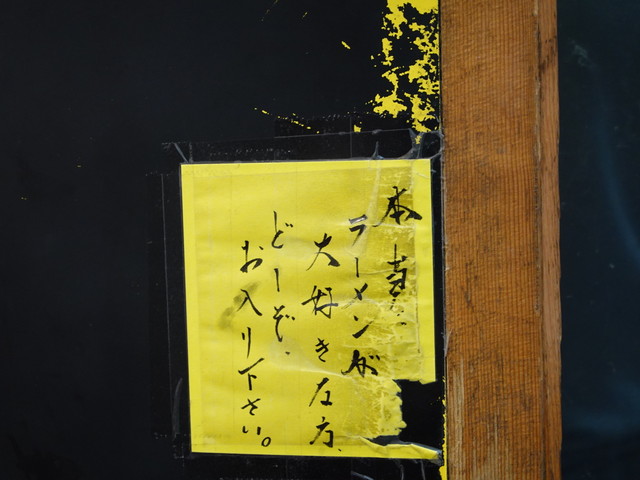 本
ラーメンが
大好きな方、
どーぞ、
お入り下さい。